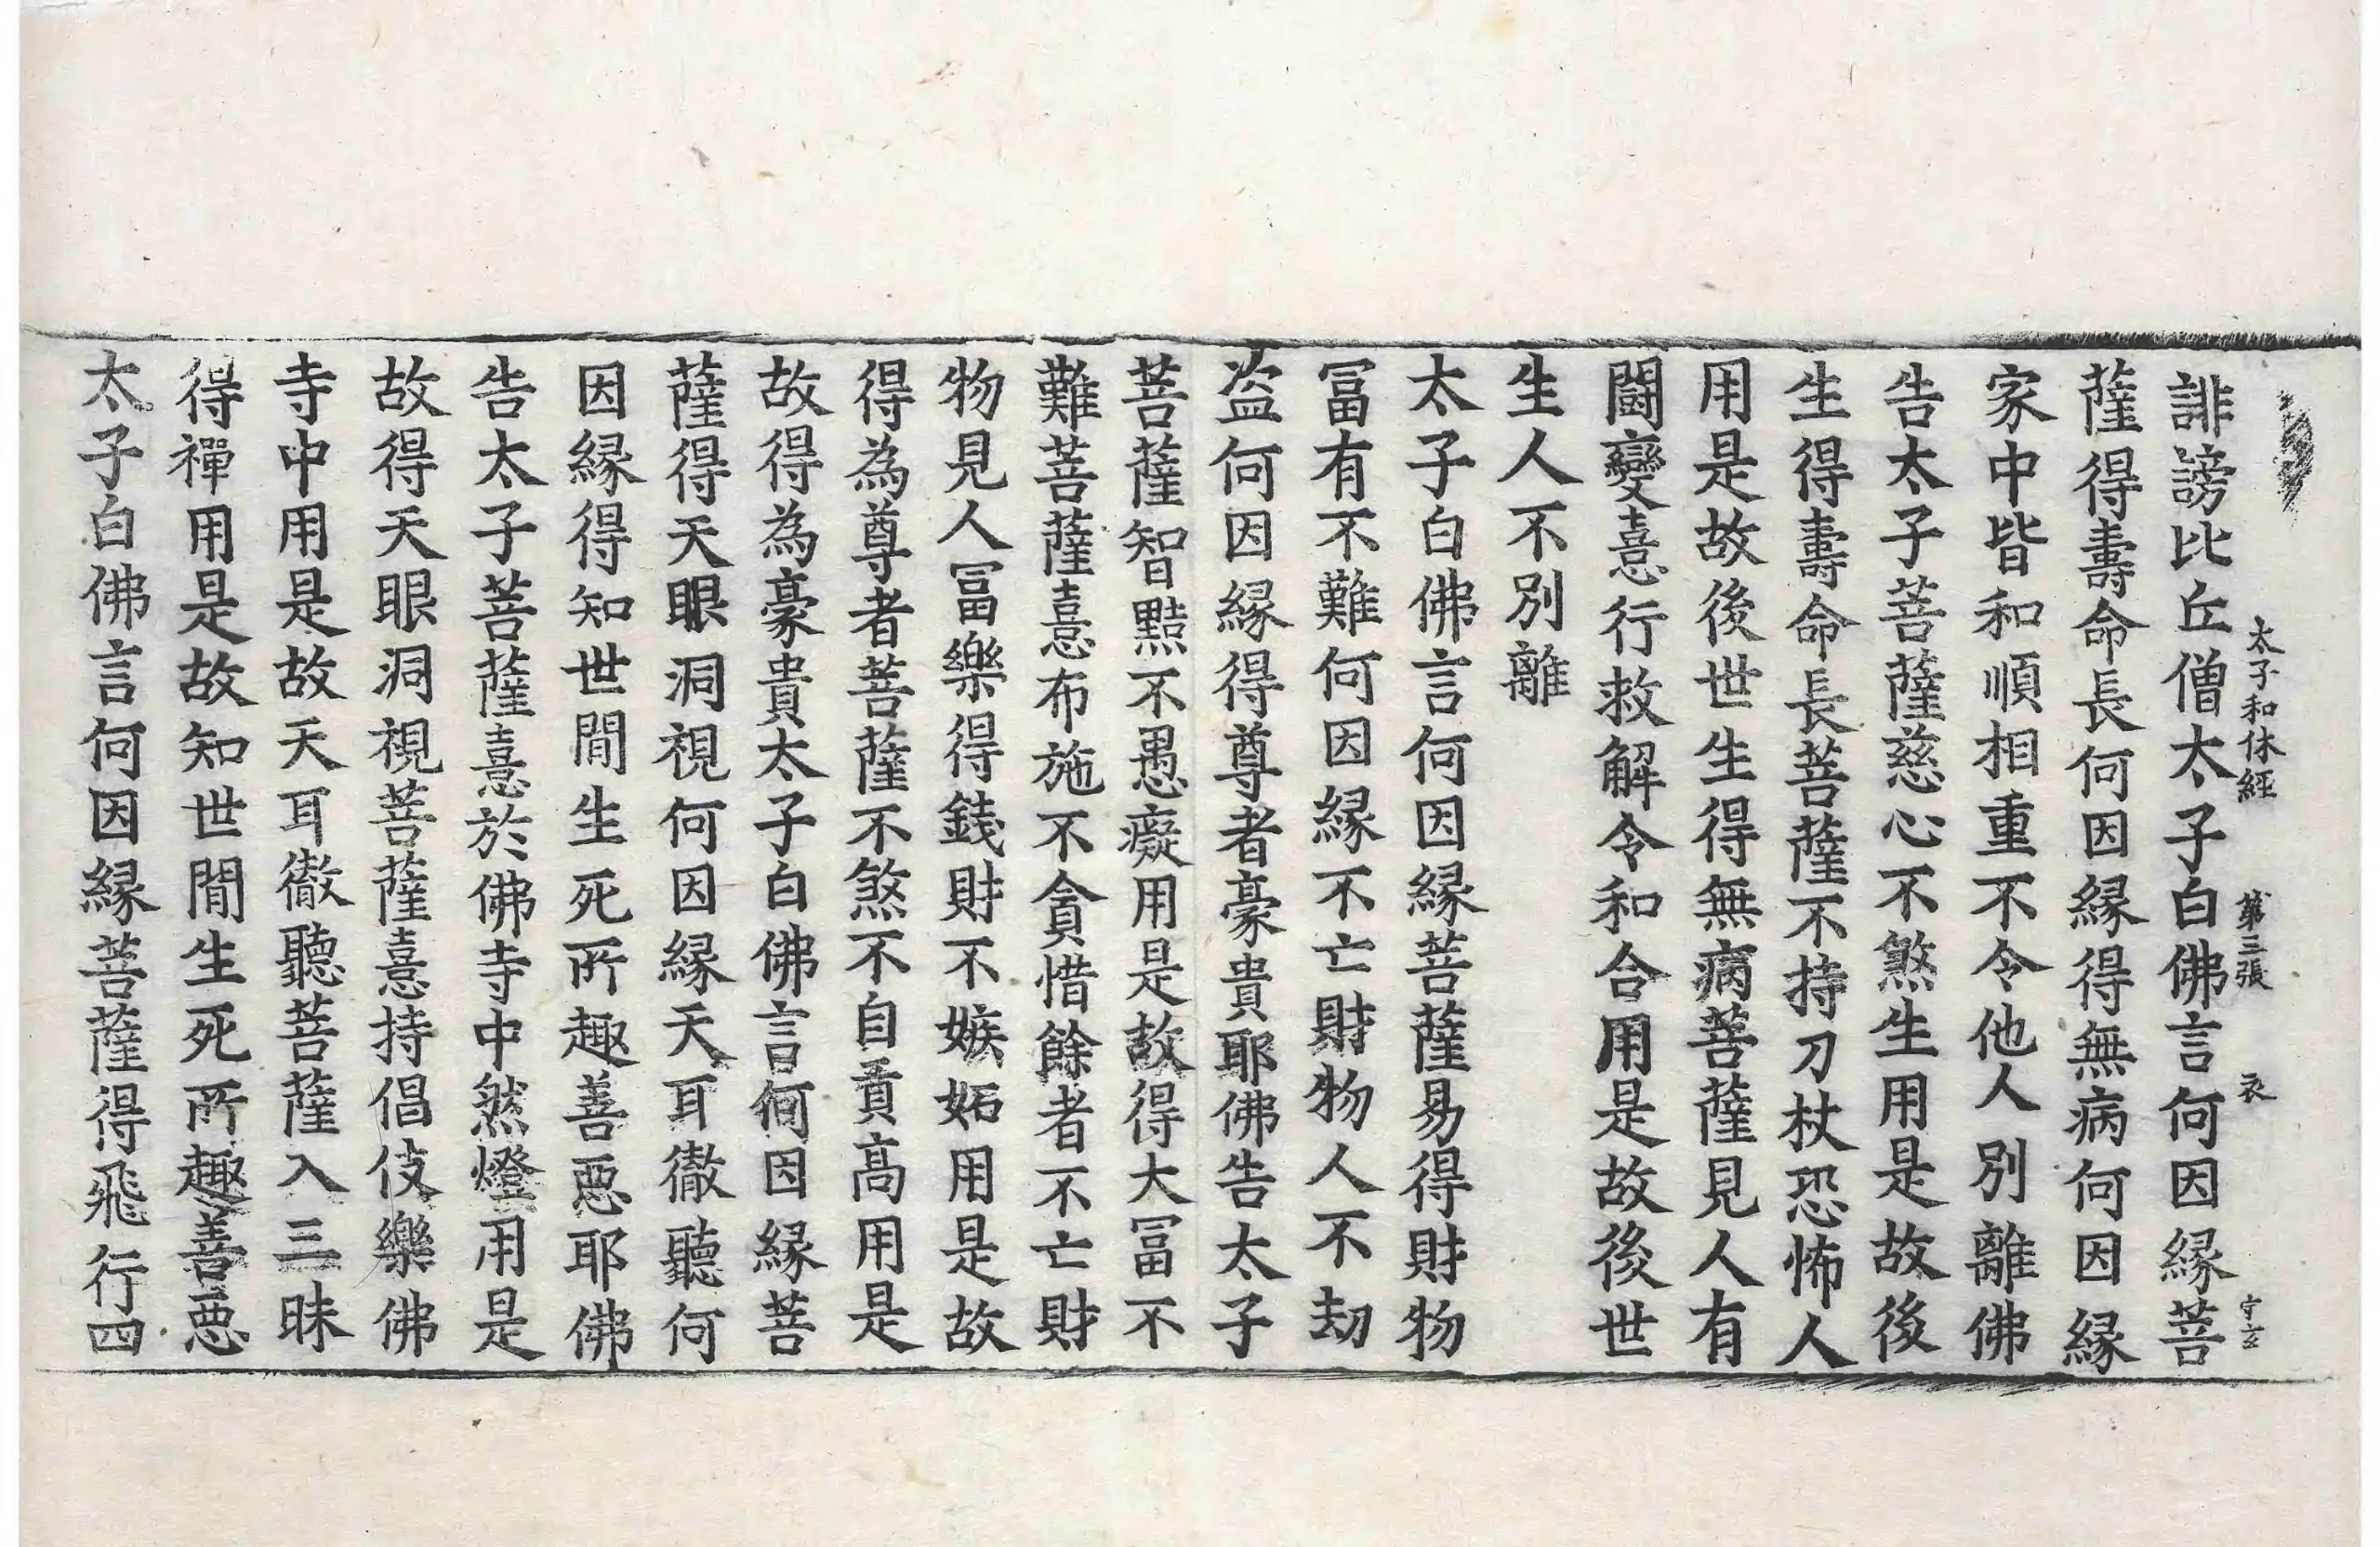 太子和休經 第三張 衣 守立
誹謗比丘僧太子白佛言何因縁菩
薩得壽命長何因縁得無病何因縁
家中皆和順相重不令他人別離佛
告太子菩薩慈心不煞生用是故後
生得壽命長菩薩不持刀杖恐怖人
用是故後世生得無病菩薩見人有
鬪變憙行救解令和合用是故後世
生人不別離
太子白佛言何因縁菩薩易得財物
冨有不難何因縁不亡財物人不刧
盗何因縁得尊者豪貴耶佛告太子
菩薩智黠不愚癡用是故得大冨不
難菩薩憙布施不貪惜餘者不亡財
物見人冨樂得錢財不嫉妬用是故
得為尊者菩薩不煞不自貢高用是
故得為豪貴太子白佛言何因縁菩
薩得天眼洞視何因縁天耳徹聽何
因縁得知世間生死所趣善惡耶佛
告太子菩薩憙於佛寺中然燈用是
故得天眼洞視菩薩憙持倡伎樂佛
寺中用是故天耳徹聽菩薩入三昧
得禪用是故知世間生死所趣善惡
太子白佛言何因縁菩薩得飛行四